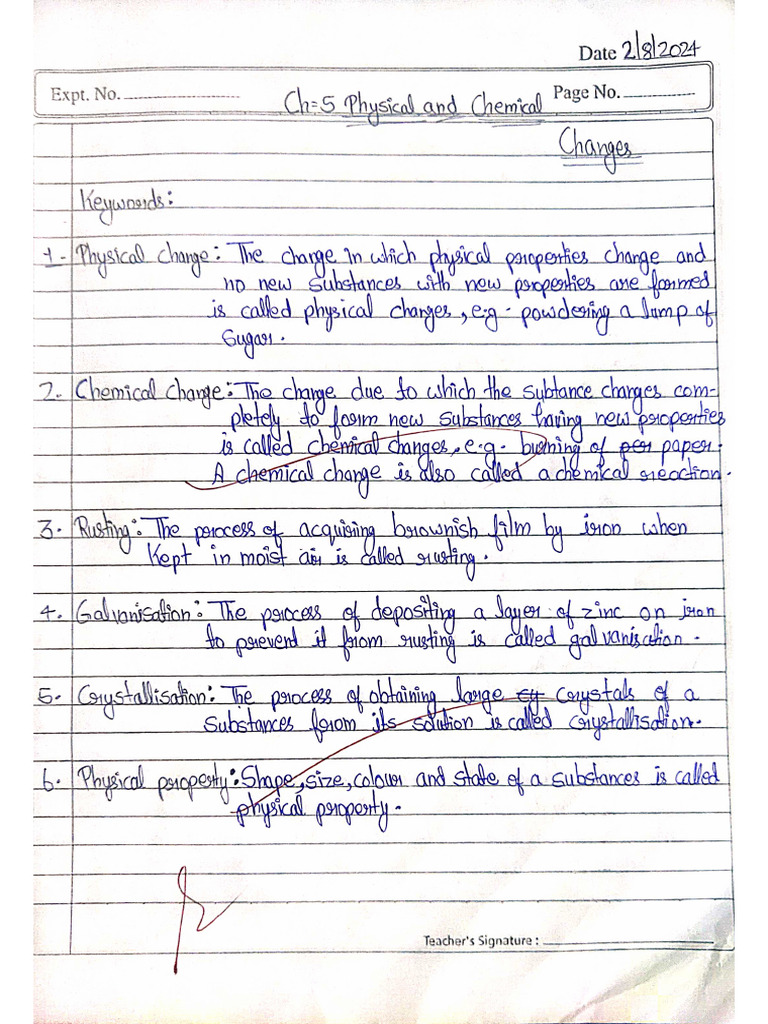 Date 2/8/2024
Expt. No. Ch=5 Physical and Chemical Page No.
Changes
Keywords:
1- Physical change: The change in which physical properties change and
no new substances with new properties are formed
is called physical changes, e.g- powdering a lump of
Sugar.
2- Chemical change: The change due to which the subtance changes com-
pletely to form new substances having new properties
is called chemical changes, e.g- burning of per paper.
A chemical change is also called a chemical reaction.
3- Rusting: The process of acquiring brownish film by iron when
Kept in moist air is called rusting.
4. Galvanisation: The process of depositing a layer of zinc on iron
to prevent it from rusting is called galvanisation.
5- Crystallisation: The process of obtaining large cy crystals of a
substances from its solution is called crystallisation.
6- Physical property: Shape, size, colour and state of a substances is called
physical property.
Teacher's Signature :